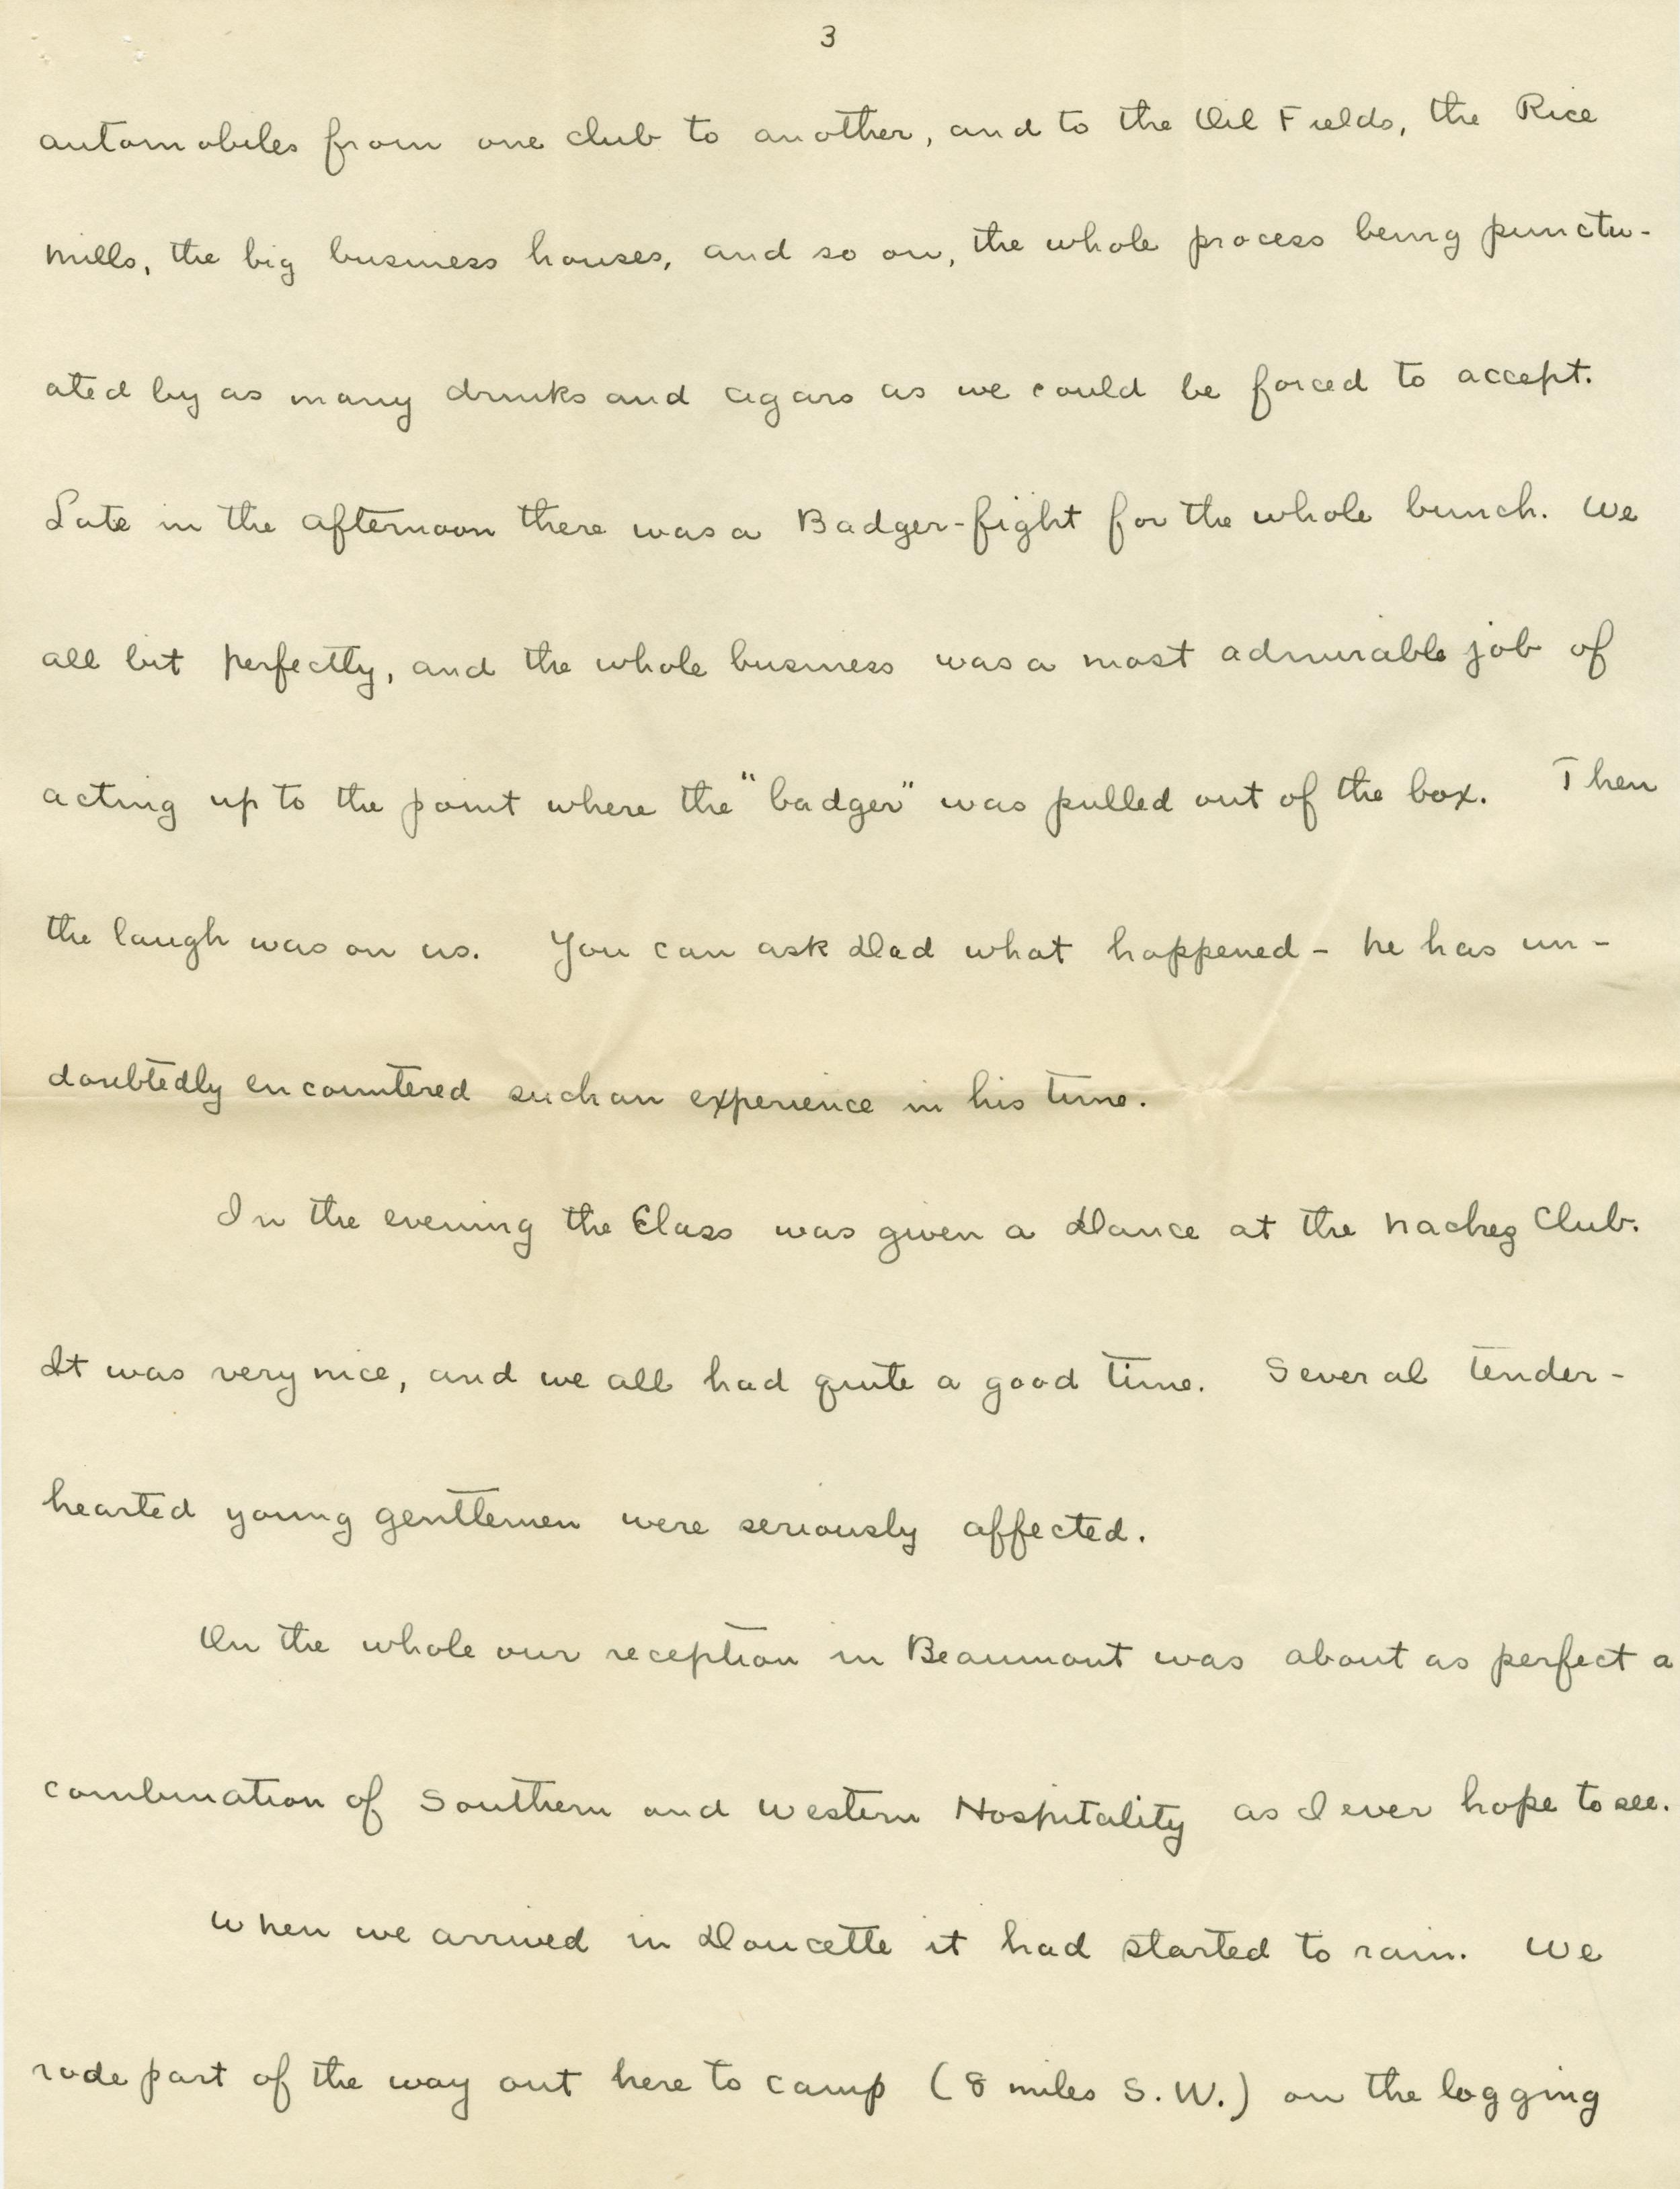 3
automobiles from one club to another, and to the Oil Fields, the Rice
Mills, the big business houses, and so on, the whole process being punctu-
ated by as many drinks and cigars as we could be forced to accept.
Late in the afternoon there was a Badger-fight for the whole bunch. We
all bit perfectly, and the whole business was a most admirable job of
acting up to the point where the "badger" was pulled out of the box. Then
the laugh was on us. You can ask Dad what happened - he has un-
doubtedly encountered such an experience in his time.
In the evening the Class was given a Dance at the Naches Club.
It was very nice, and we all had quite a good time. Several tender-
hearted young gentlemen were seriously affected.
On the whole our reception in Beaumont was about as perfect a
combination of Southern and Western Hospitality as I ever hope to see.
When we arrived in Doucette it had started to rain. We
rode part of the way out here to camp (8 miles S.W.) on the logging